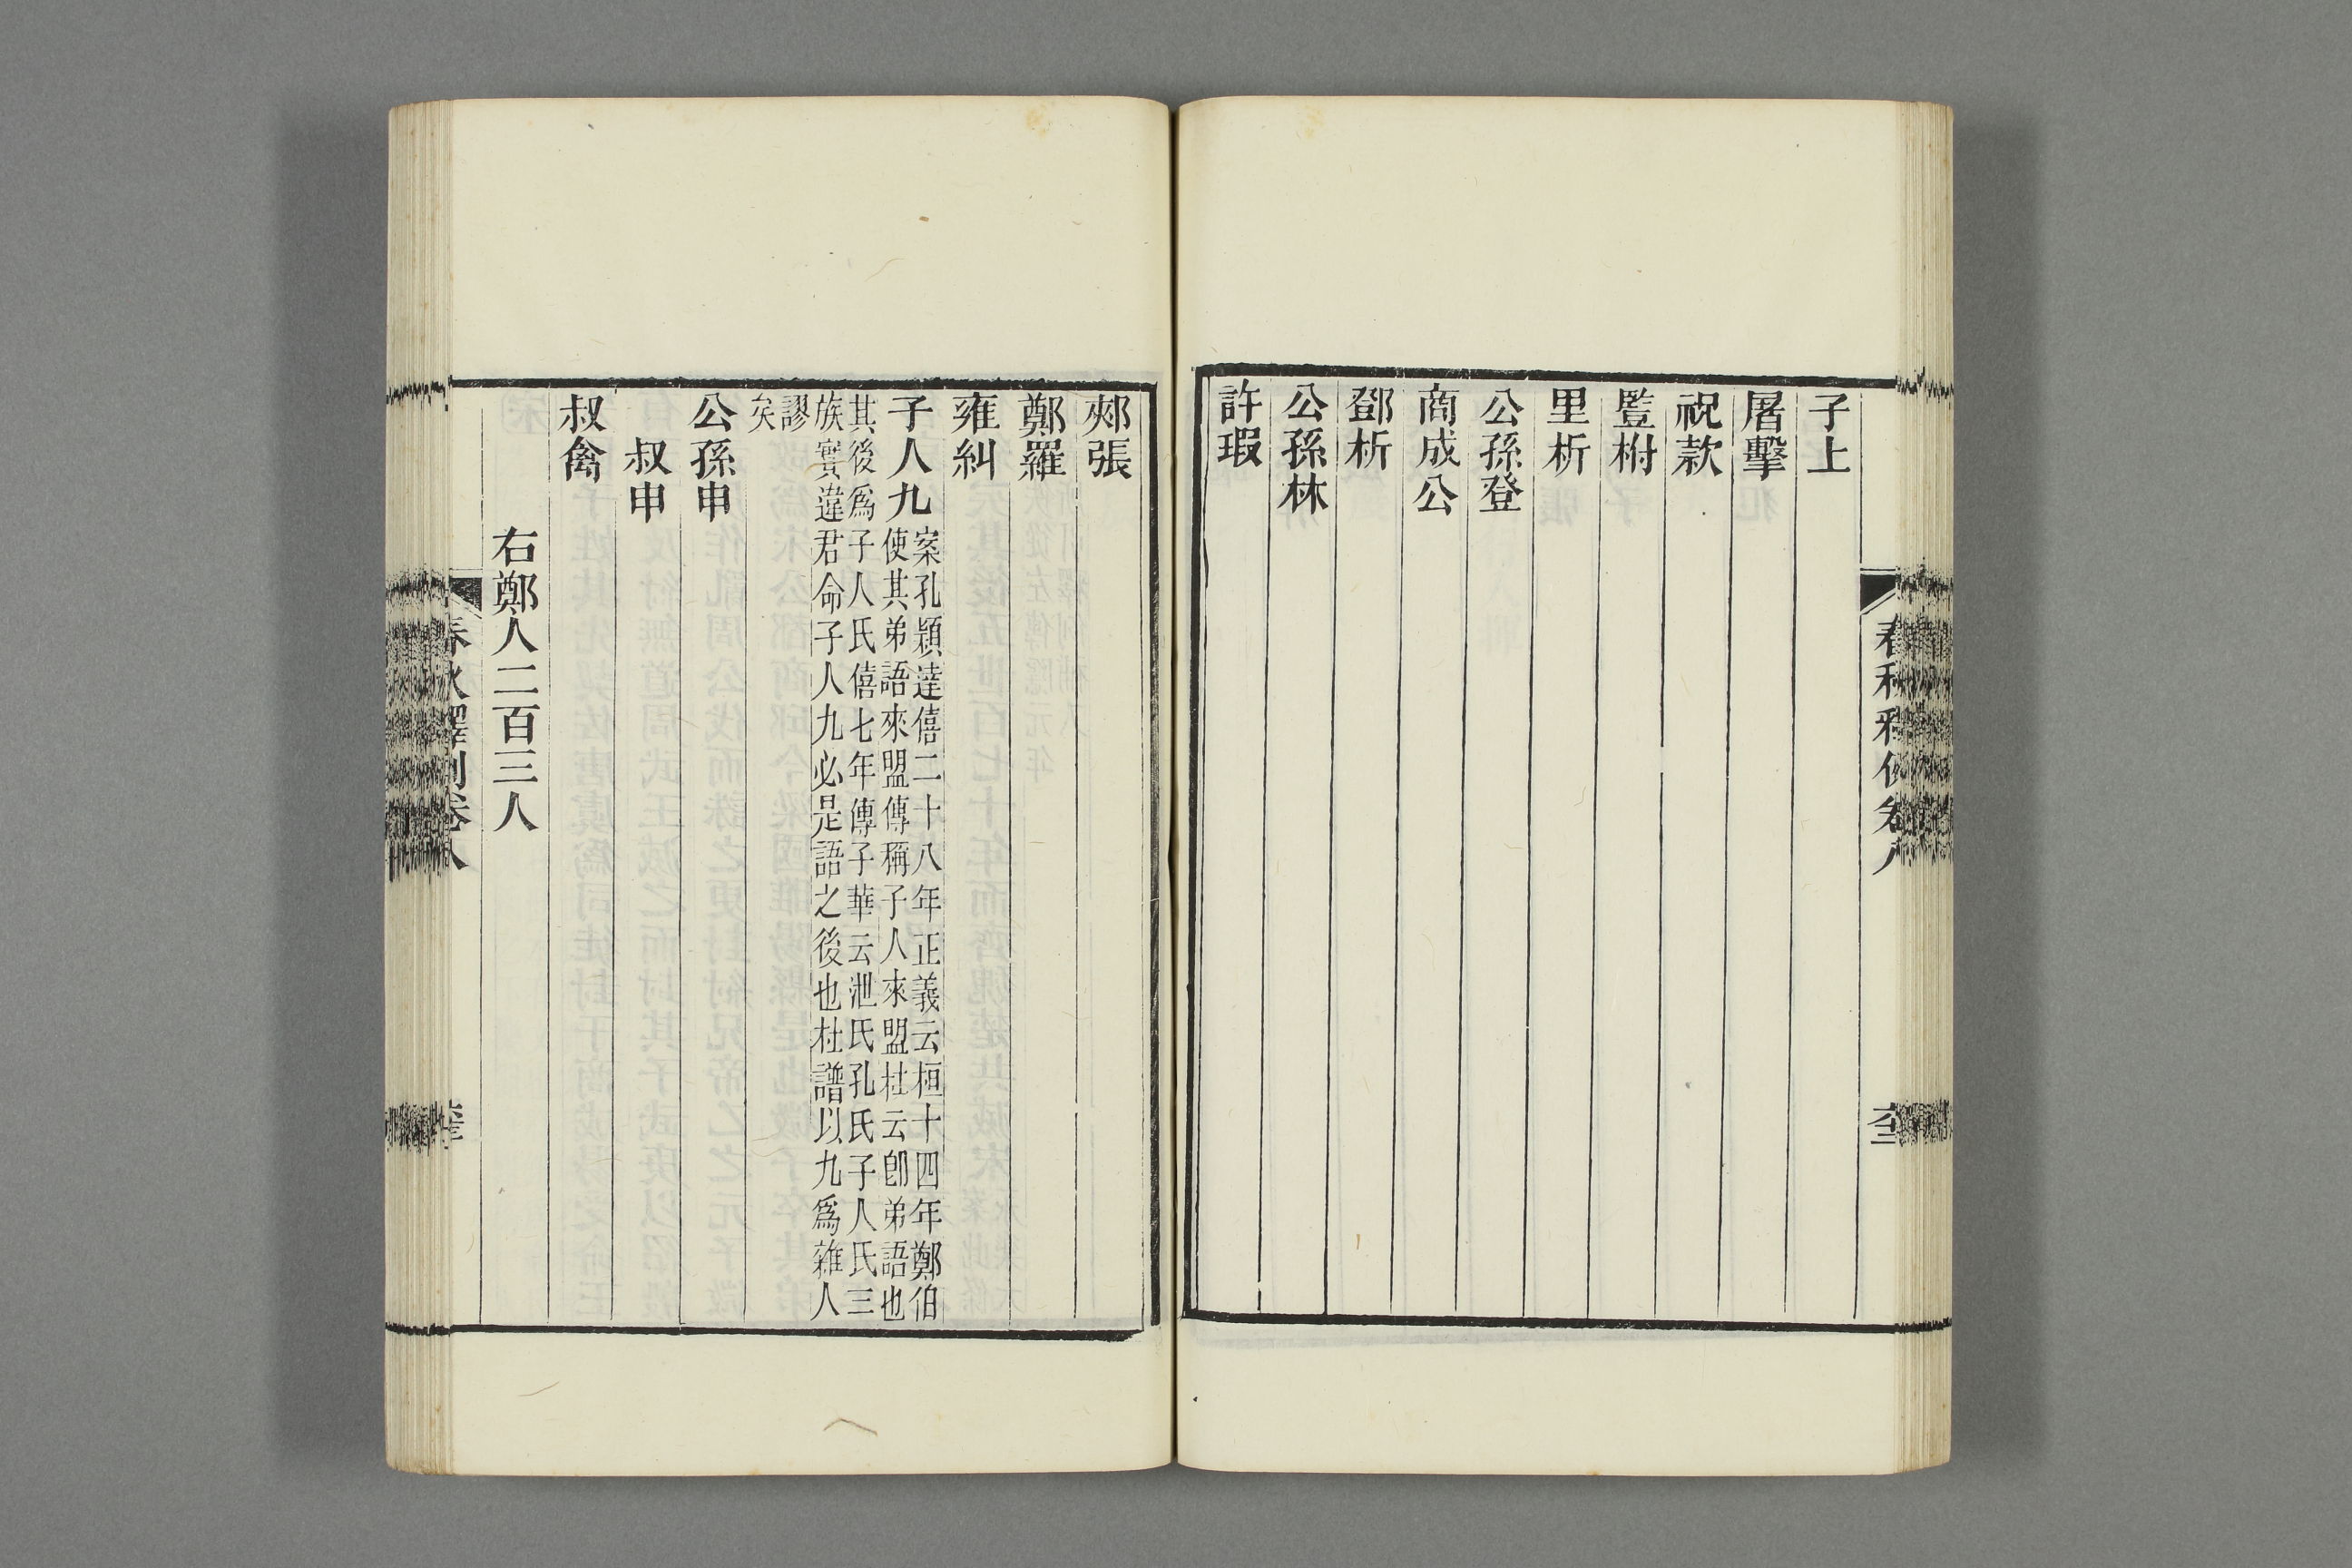 子上
屠擊
祝款
豎柎
里析
公孫登
商成公
鄧析
公孫林
許瑕
郟張
鄭羅
雍糾
子人九
案孔穎達僖二十八年正義云桓十四年鄭伯
使其弟語來盟傳稱子人來盟杜云卽弟語也
其後爲子人氏僖七年傳子華云泄氏孔氏子人氏三
族實違君命子人九必是語之後也杜譜以九爲雜人
謬
矣
公孫申
叔申
叔禽
右鄭人二百三人
春秋釋例卷八